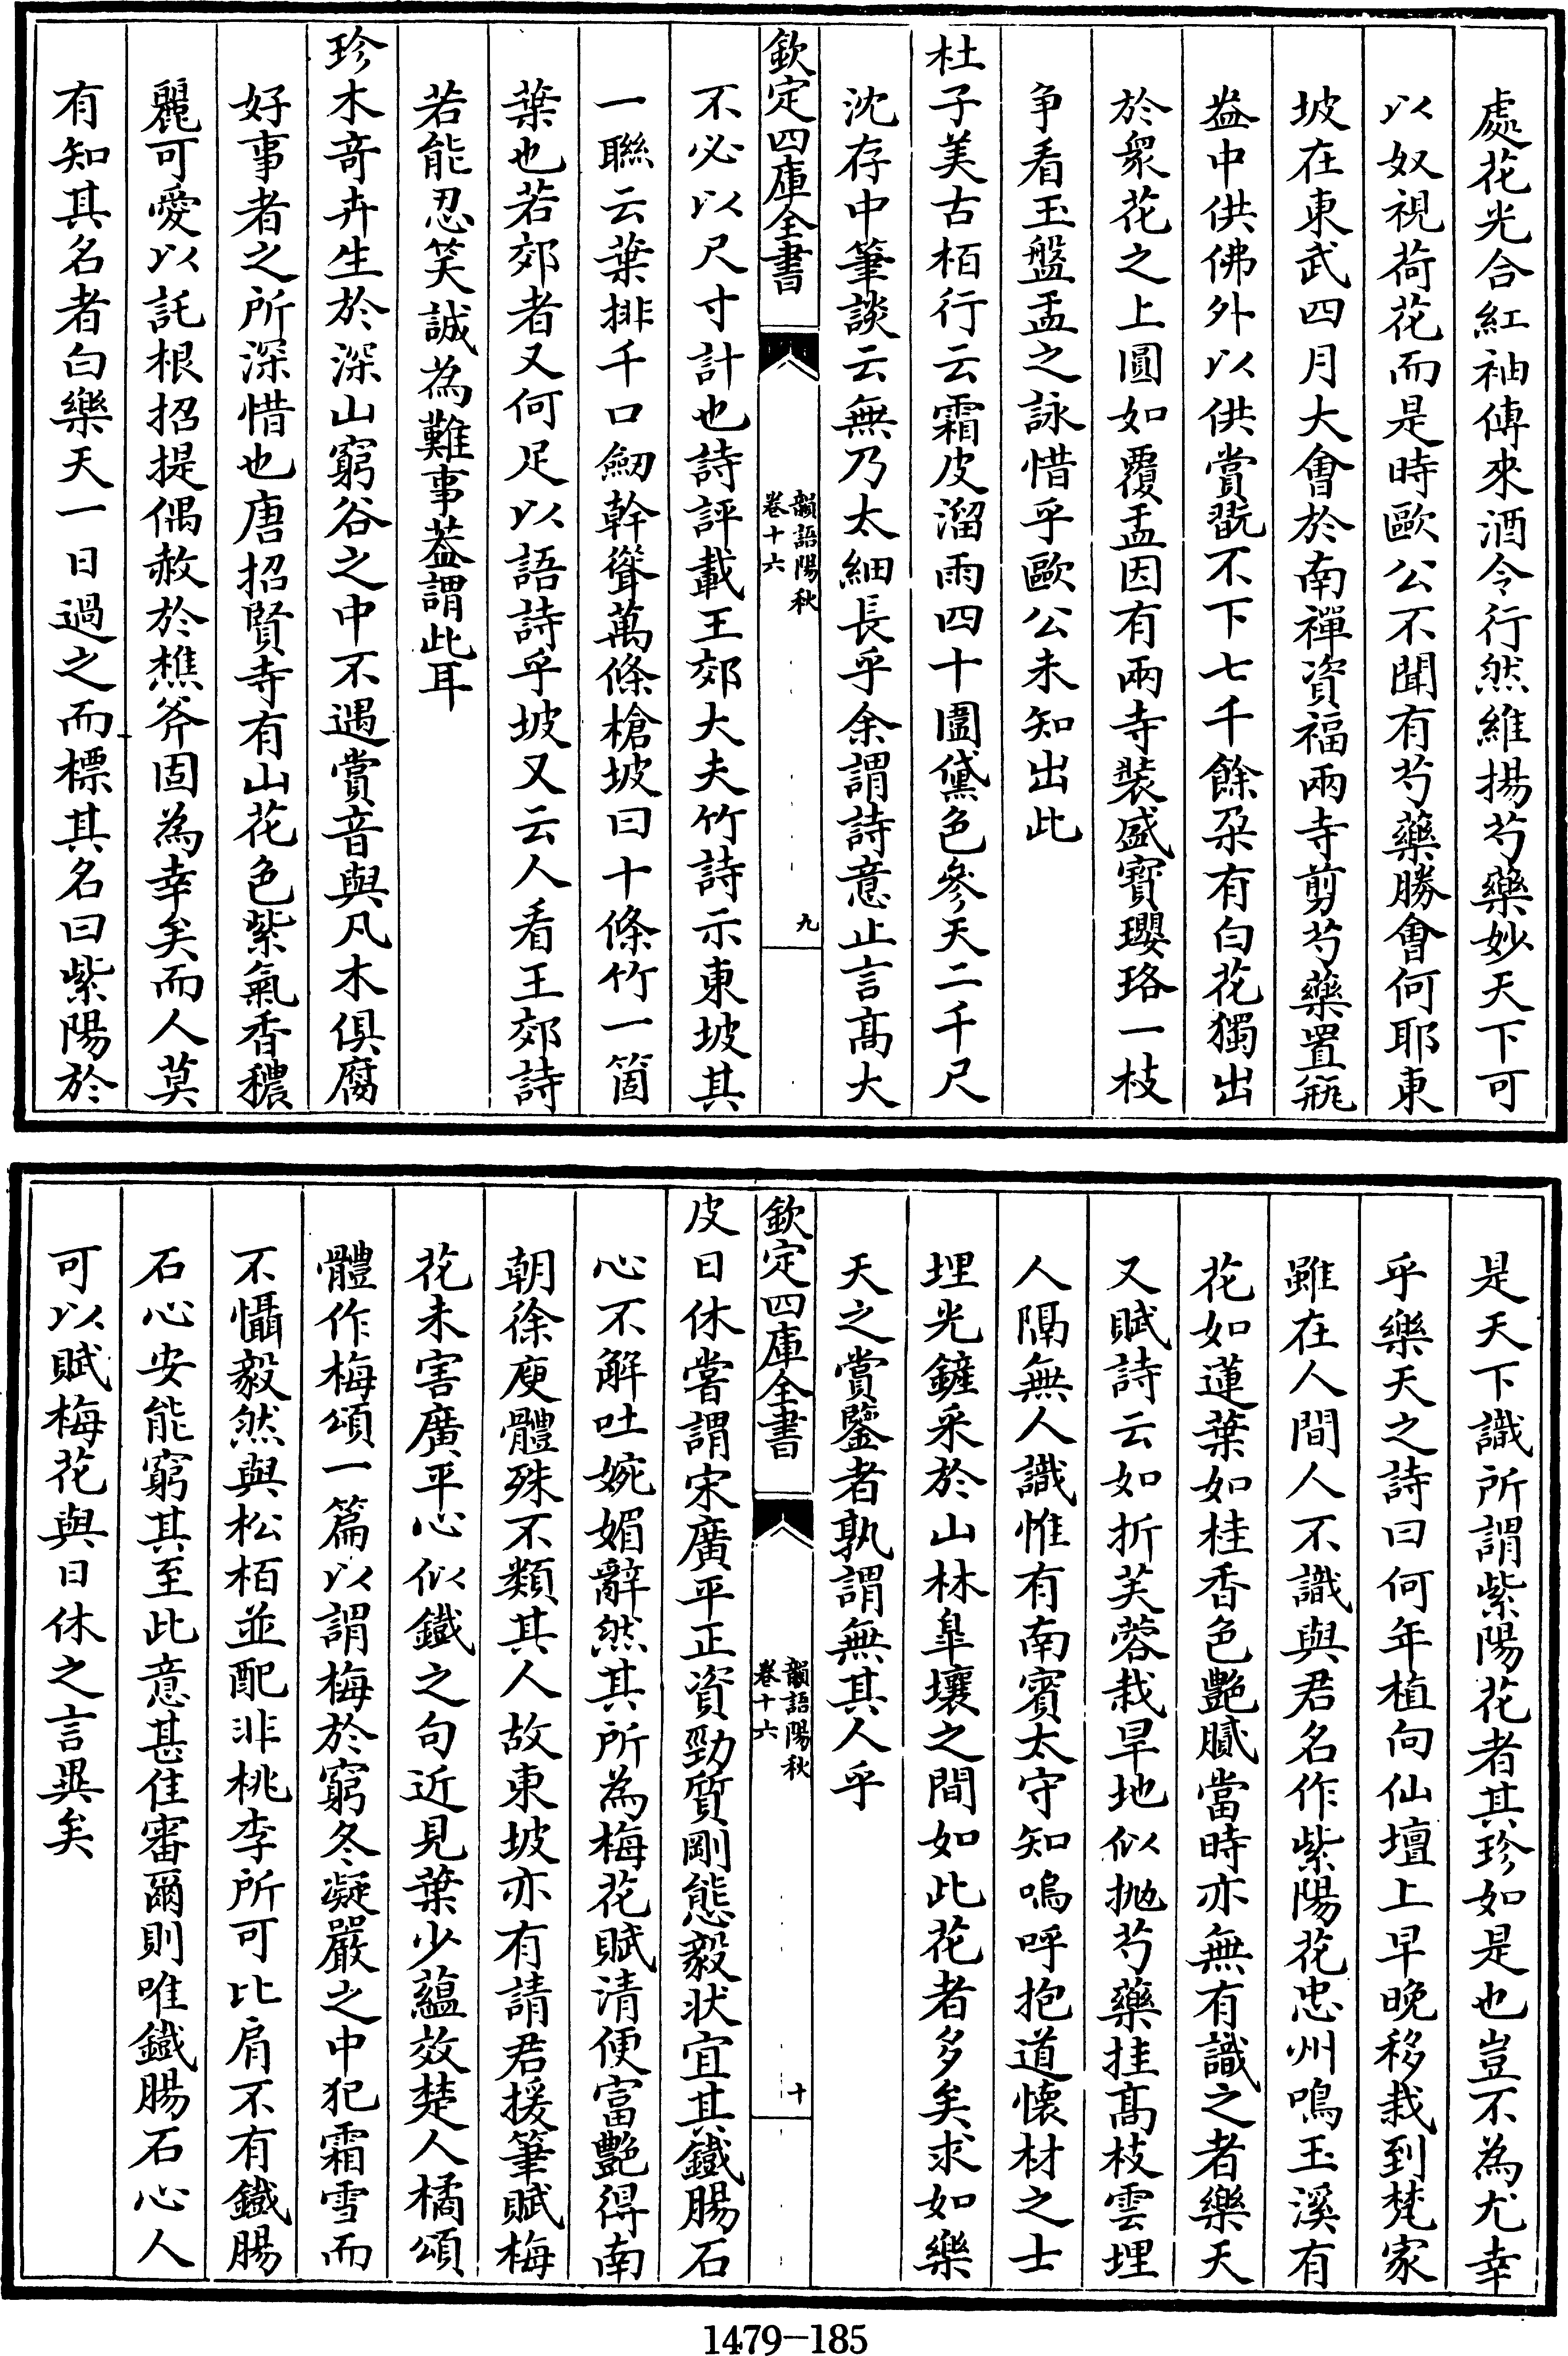 處花光合紅袖傳來酒令行然維揚芍藥妙天下可
以奴視荷花而是時歐公不聞有芍藥勝㑹何耶東
坡在東武四月大㑹於南禪資福兩寺剪芍藥置瓶
盎中供佛外以供賞翫不下七千餘朶有白花獨出
於衆花之上圓如覆盂因有兩寺裝盛寳瓔珞一枝
争看玉盤盂之詠惜乎歐公未知出此
杜子美古栢行云霜皮溜雨四十圍黛色參天二千尺
沈存中筆談云無乃太細長乎余謂詩意止言髙大
欽定四庫全書
韻語陽秋
卷十六
九
不必以尺寸計也詩評載王郊大夫竹詩示東坡其
一聯云葉排千口劒幹聳萬條槍坡曰十條竹一箇
葉也若郊者又何足以語詩乎坡又云人看王郊詩
若能忍笑誠為難事葢謂此耳
珍木竒卉生於深山窮谷之中不遇賞音與凡木俱腐
好事者之所深惜也唐招賢寺有山花色紫氣香穠
麗可愛以託根招提偶赦於樵斧固為幸矣而人莫
有知其名者白樂天一日過之而標其名曰紫陽於
是天下識所謂紫陽花者其珍如是也豈不為尤幸
乎樂天之詩曰何年植向仙壇上早晚移栽到梵家
雖在人間人不識與君名作紫陽花忠州鳴玉溪有
花如蓮葉如桂香色艶膩當時亦無有識之者樂天
又賦詩云如折芙蓉栽旱地似抛芍藥挂髙枝雲埋
人隔無人識惟有南賓太守知嗚呼抱道懐材之士
埋光鏟采於山林臯壤之間如此花者多矣求如樂
天之賞鑒者孰謂無其人乎
欽定四庫全書
韻語陽秋
卷十六
十
皮日休嘗謂宋廣平正資勁質剛態毅状宜其鐵腸石
心不解吐婉媚辭然其所為梅花賦清便富艷得南
朝徐庾體殊不類其人故東坡亦有請君援筆賦梅
花未害廣平心似鐵之句近見葉少藴效楚人橘頌
體作梅頌一篇以謂梅於窮冬凝嚴之中犯霜雪而
不懾毅然與松栢並配非桃李所可比肩不有鐵腸
石心安能窮其至此意甚佳審爾則唯鐵腸石心人
可以賦梅花與日休之言異矣
1479-185